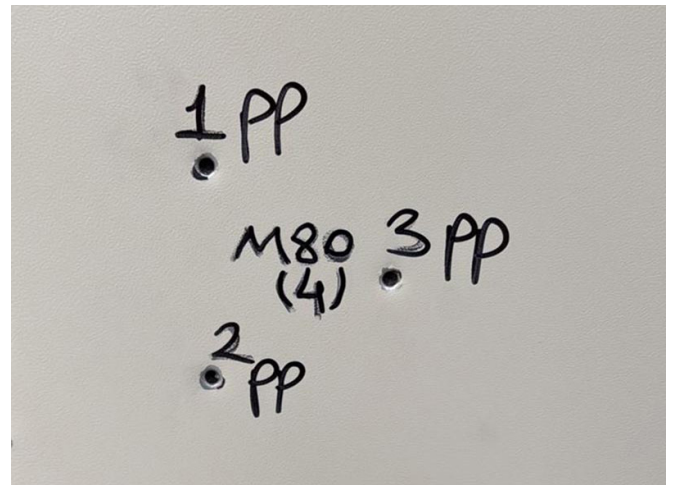 1 PP
M80 3 PP
(4)
2
PP